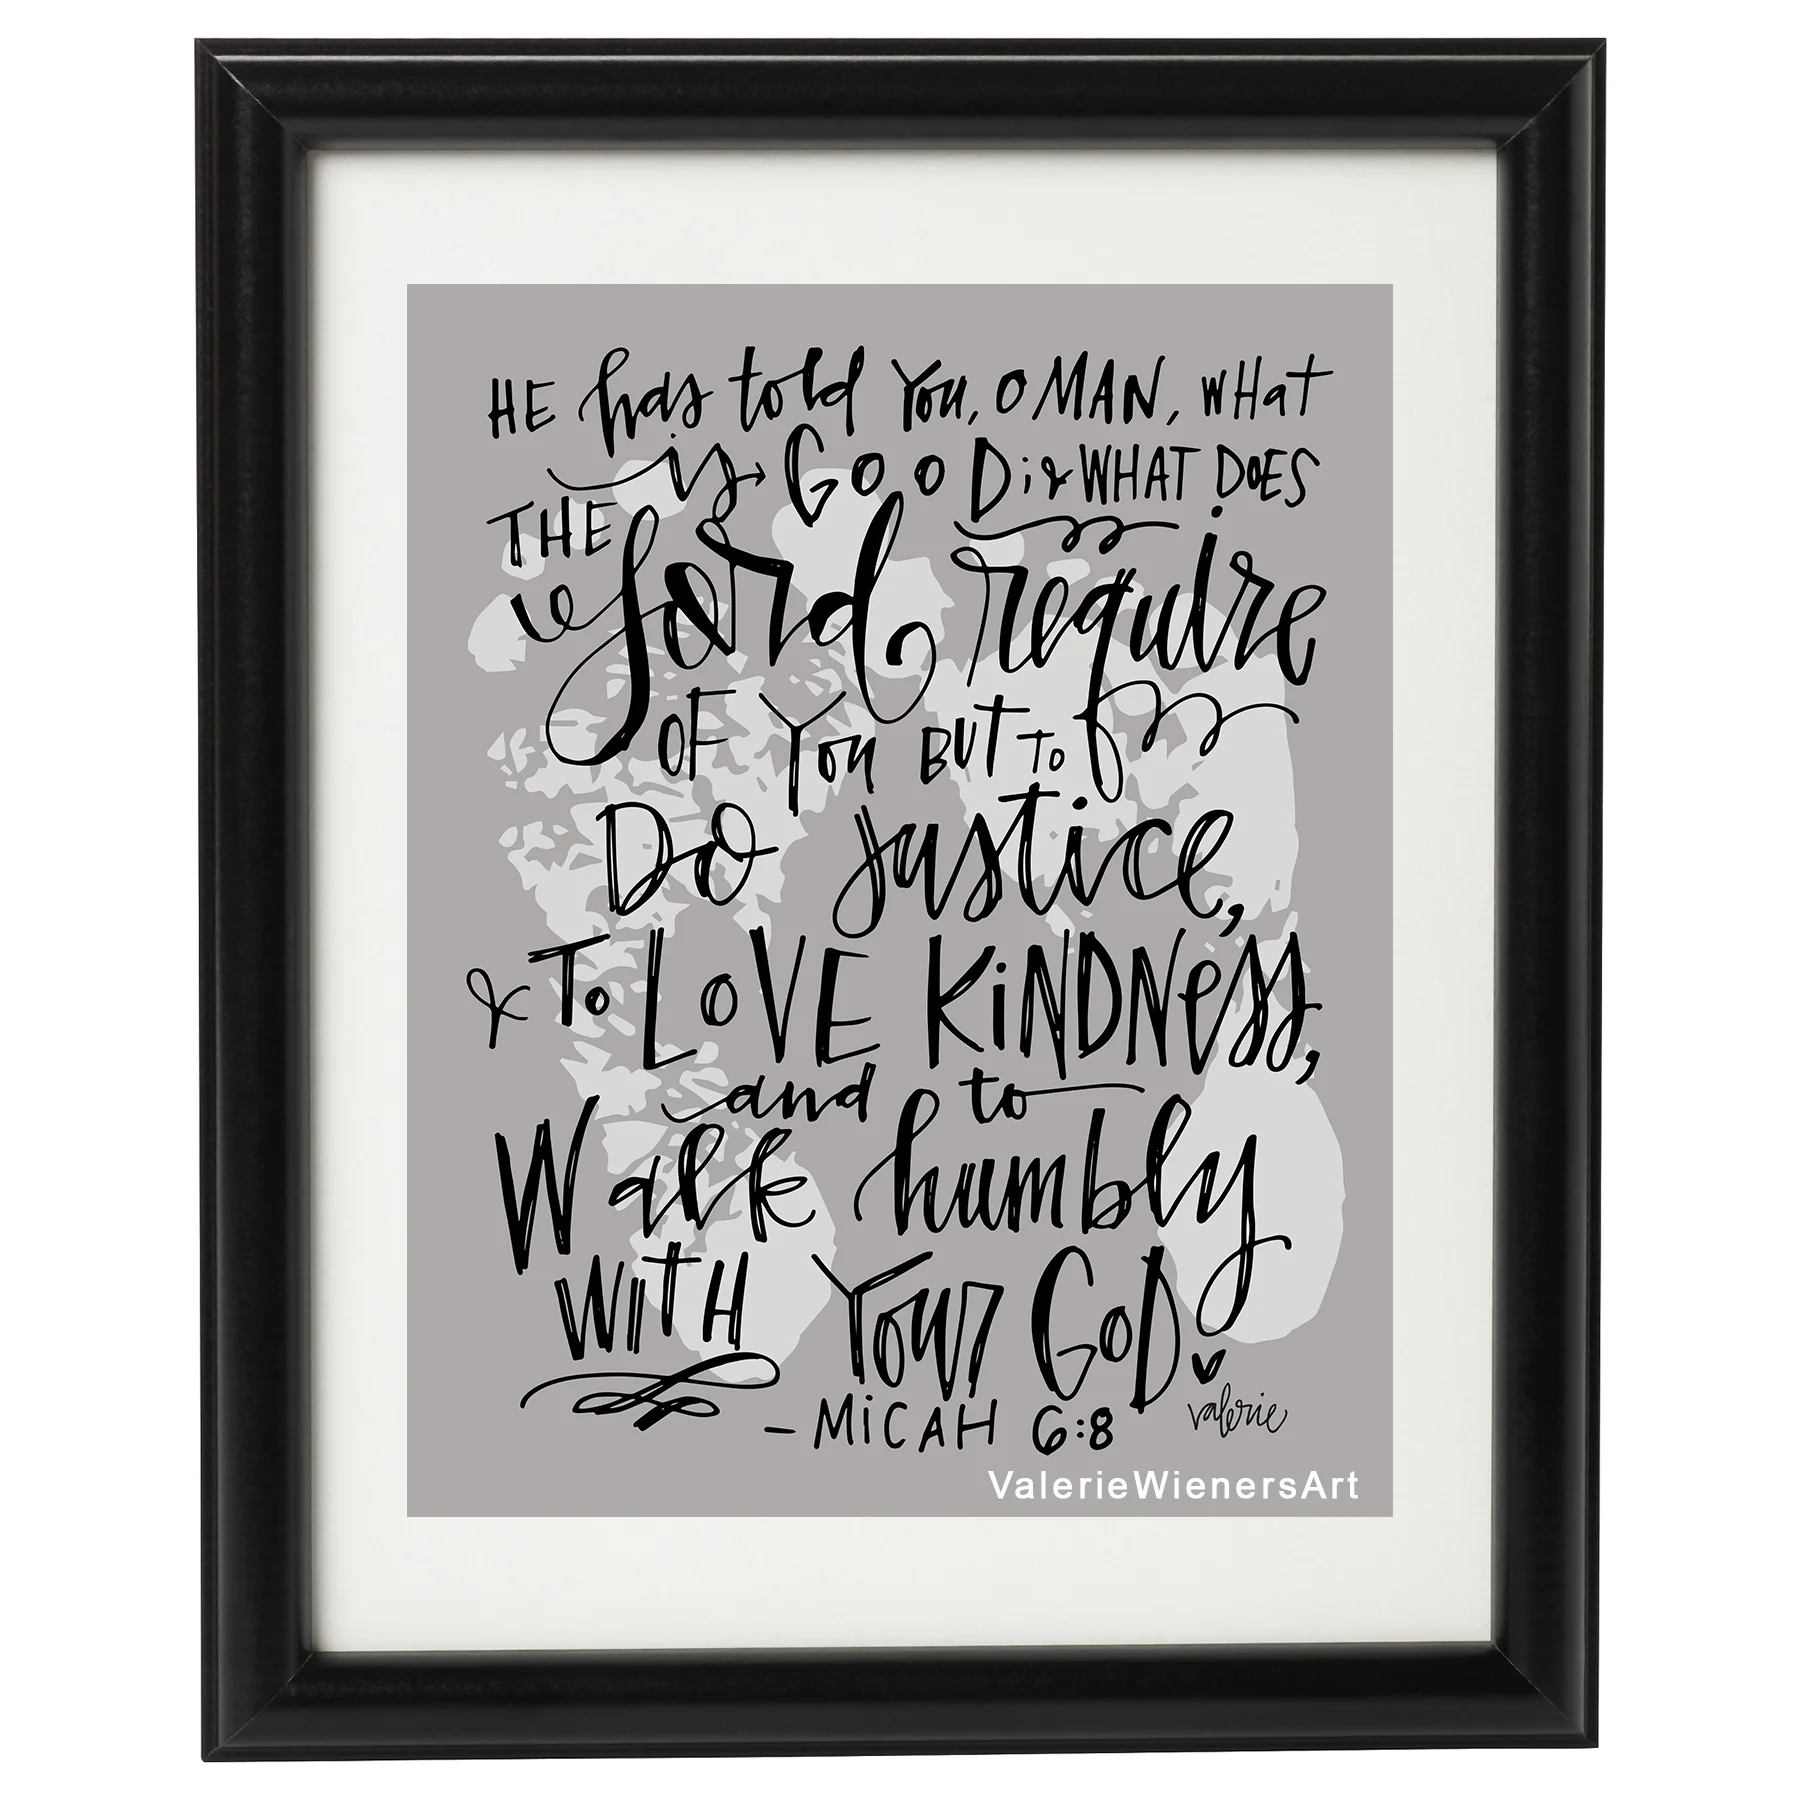 HE has told You, O MAN, wHat
is GOOD; & WHAT DOES
THE Lord require
OF You BUT TO
Do justice,
& To LoVE KiNDNess,
and to
Walk humbly
WiTH Your GoD.
- MiCAH 6:8
valerie
ValerieWienersArt